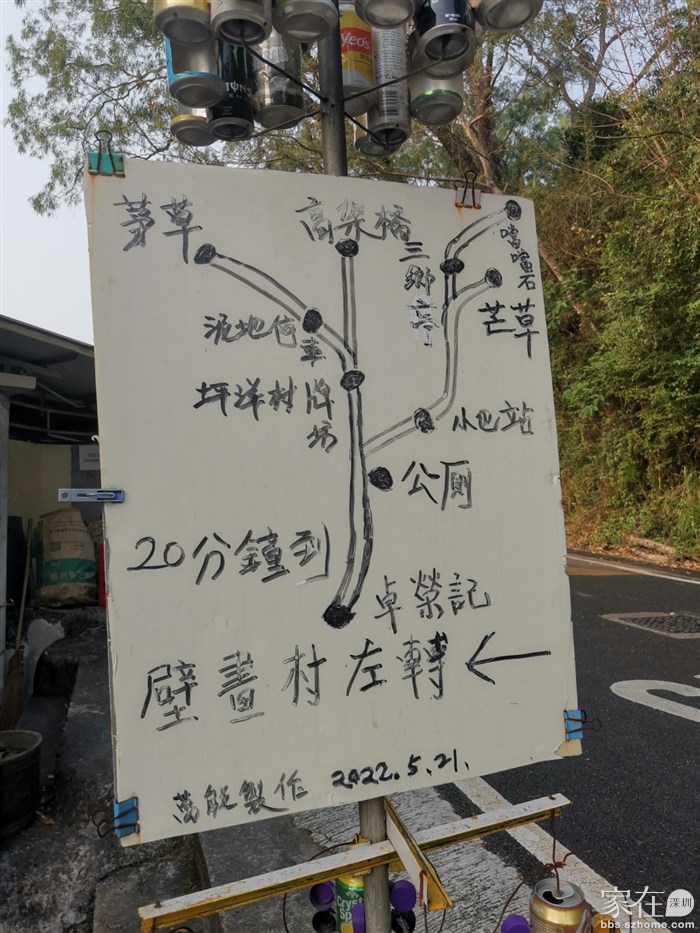 Yeo's
茅草
高架橋
三鄉亭
噹噹石
芒草
泥地停車
坪洋村牌坊
小巴站
公厠
20分鐘到
卓榮記
壁畫村左轉←
萬能製作 2022.5.21.
Cryst
Sp
家在深圳
bbs.szhome.com